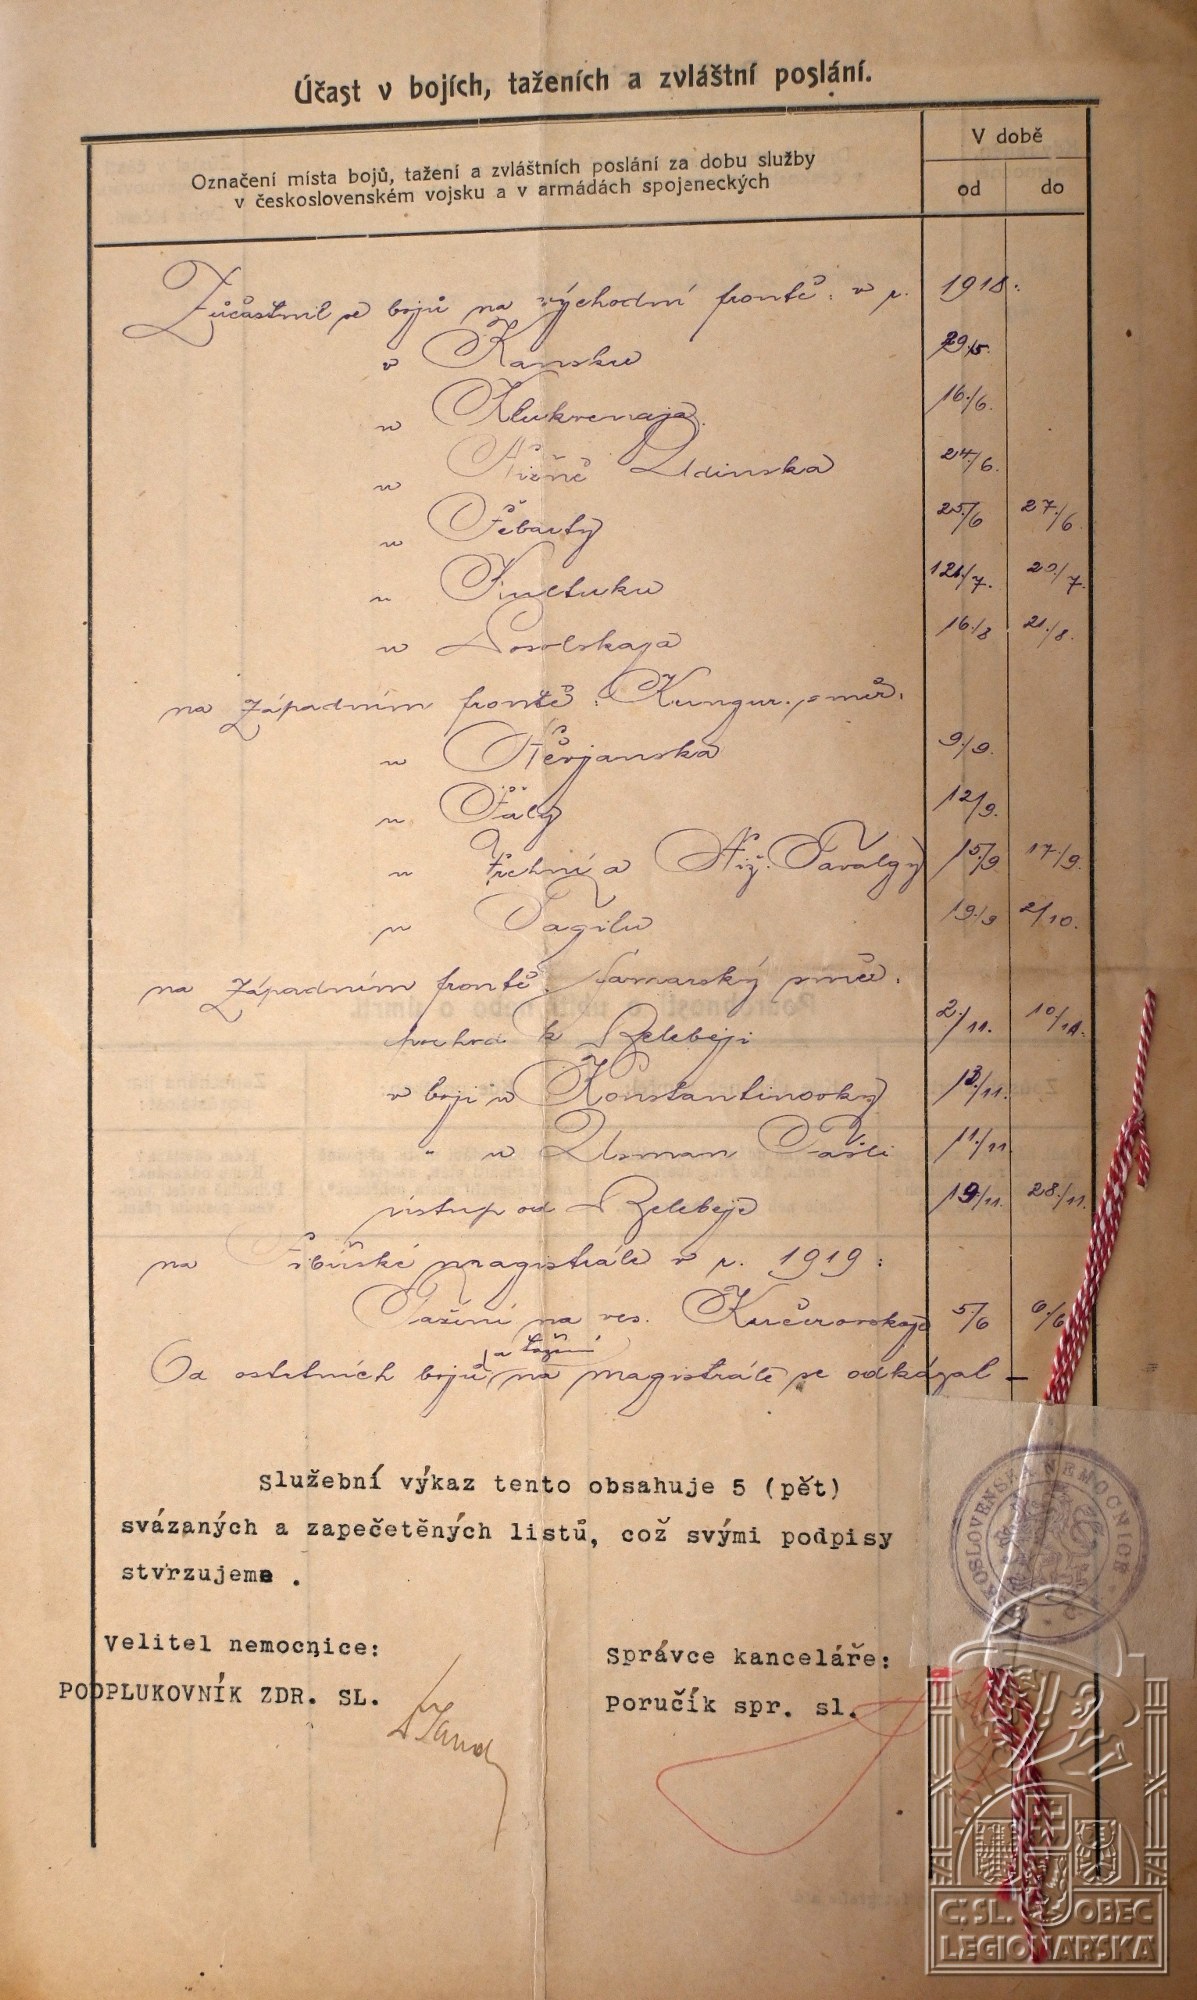 Účast v bojích, taženích a zvláštní poslání.
Označení místa bojů, tažení a zvláštních poslání za dobu služby
v československém vojsku a v armádách spojeneckých
V době
od do
Zůčastnil se bojů na východní frontě: v r. 1918:
v Kansku 29/5.
u Klukvenaja 16./6.
u Nižně Udinska 24/6.
u Šebarty 25/6 27./6.
u Kultuku 7. 20/7.
u Posolskaja 16./8 21./8.
na západním frontě: Kungur. směr.
u Něvjanska 9./9.
u Šaly 12/9.
u Vrchní a Niž. Tavalgy 15/9 17/9.
u Tagilu 19./9 2/10.
na západním frontě Samarský směr.
k Belebeji 2./11. 10/11.
v boji u Konstantinovky 13/11.
" u Usman Tašli 11/11
ústup od Belebeje 19/11. 28./11.
na Sibiřské magistrále v r. 1919:
Tažení na ves. Kučerovskaje 5/6 6/6
a tažení
Od ostatních bojů na magistrále se odkázal —
Služební výkaz tento obsahuje 5 (pět)
svázaných a zapečetěných listů, což svými podpisy
stvrzujeme .
Velitel nemocnice: Správce kanceláře:
PODPLUKOVNÍK ZDR. SL. Poručík spr. sl.
KOSLOVENSKÁ NEMOCNICE
Č. SL. OBEC
LEGIONÁŘSKÁ